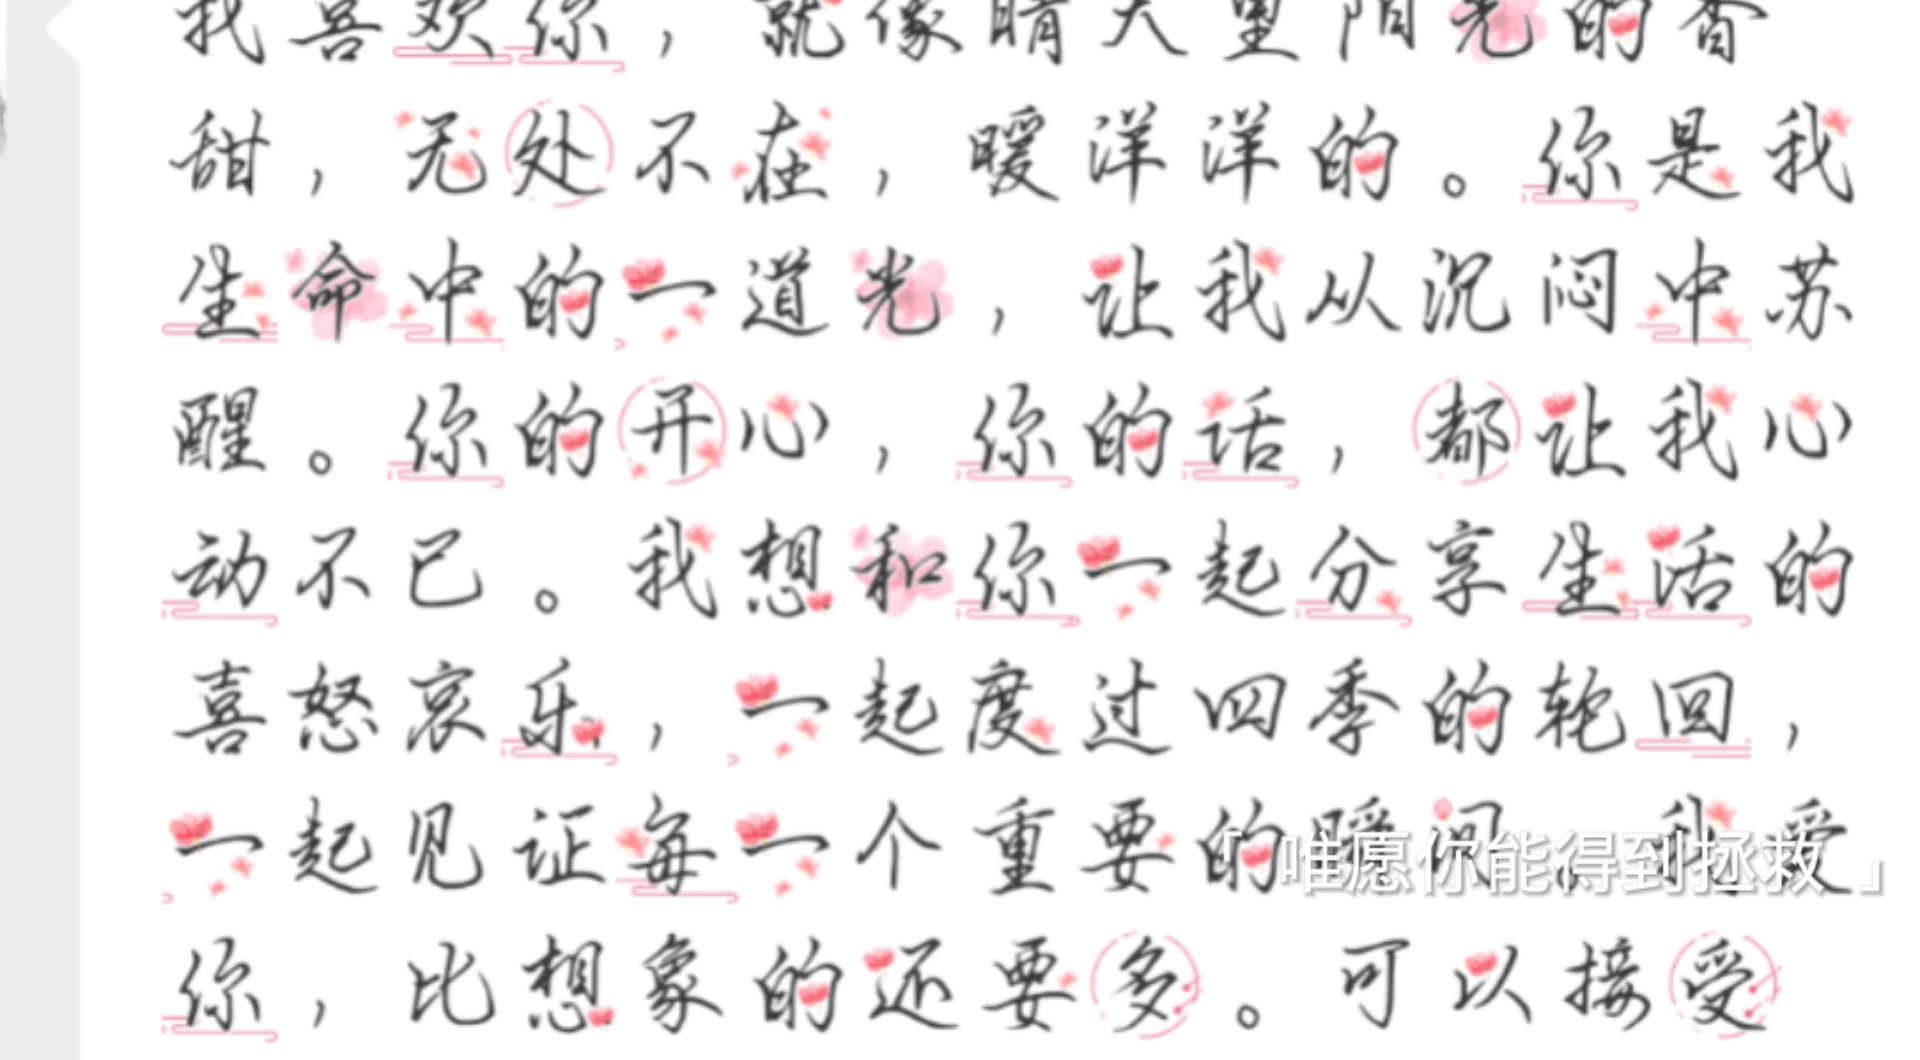 我喜欢你，就像晴天里阳光的香
甜，无处不在，暖洋洋的。你是我
生命中的一道光，让我从沉闷中苏
醒。你的开心，你的话，都让我心
动不已。我想和你一起分享生活的
喜怒哀乐，一起度过四季的轮回，
一起见证每一个重要的瞬间。我爱
「唯愿你能得到拯救」
你，比想象的还要多。可以接受